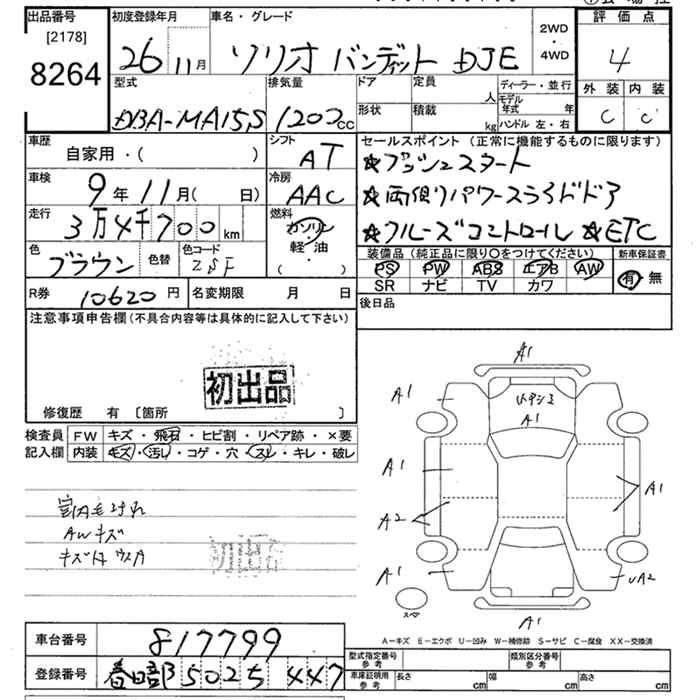 出品番号 初度登録年月 車名・グレード 評価点
[2178]
8264
26年11月 ソリオ バンディット DJE
2WD
・
4WD
4
型式 排気量 ドア 定員 人 ディーラー・並行 外装 内装
DBA-MA15S 1200cc 形状 積載 kg モデル年式 年 C C
ハンドル 左・右
車歴 シフト セールスポイント (正常に機能するものに限ります)
自家用・( ) AT ★プッシュスタート
車検 9年11月( 日) 冷房 AAC ★両側りパワースライドドア
走行 3万4千700km 燃料 ガソリン ★クルーズコントロール ★ETC
軽・油
( ・ )
色 ブラウン 色替 色コード ZSF
装備品(純正品に限り○をつけてください) 新車保証書
PS PW ABS エアB AW 有・無
SR ナビ TV カワ
R券 10620円 名変期限 月 日 後日品
注意事項申告欄(不具合内容等は具体的に記入して下さい)
初出品
修復歴 有 [箇所 ]
検査員 FW キズ・飛石・ヒビ割・リペア跡・×要
記入欄 内装 キズ・汚し・コゲ・穴・スレ・キレ・破レ
AWキズ
初出品
A1
A1
A1
A1 A1
A2
A1 UA2
スペア
A1
A-キズ E-エクボ U-凹み W-補修跡 S-サビ C-腐食 XX-交換済
車台番号 817799
登録番号 春日部 502 5 447
型式指定番号 参考 類別区分番号 参考
車庫証明用 参考 長さ cm 幅 cm 高さ cm